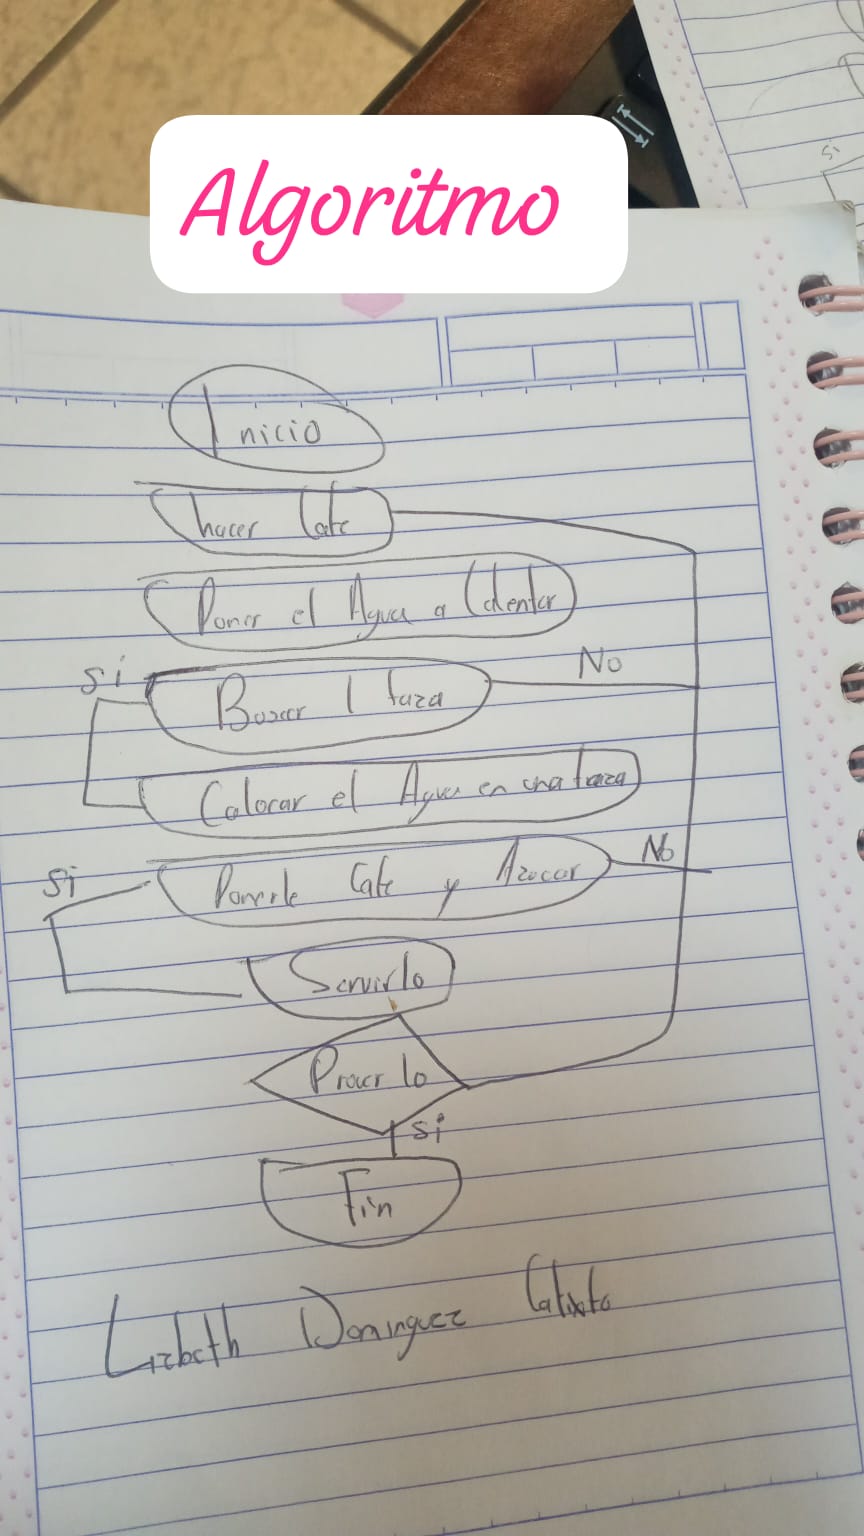 Algoritmo
Si
Inicio
hacer Cafe
Poner el Agua a Calentar
Si
Buscar 1 taza
No
Colocar el Agua en una taza
Si
Ponerle Cafe y Azucar
No
Servirlo
Provar lo
Si
Fin
Lizbeth Dominguez Calixto